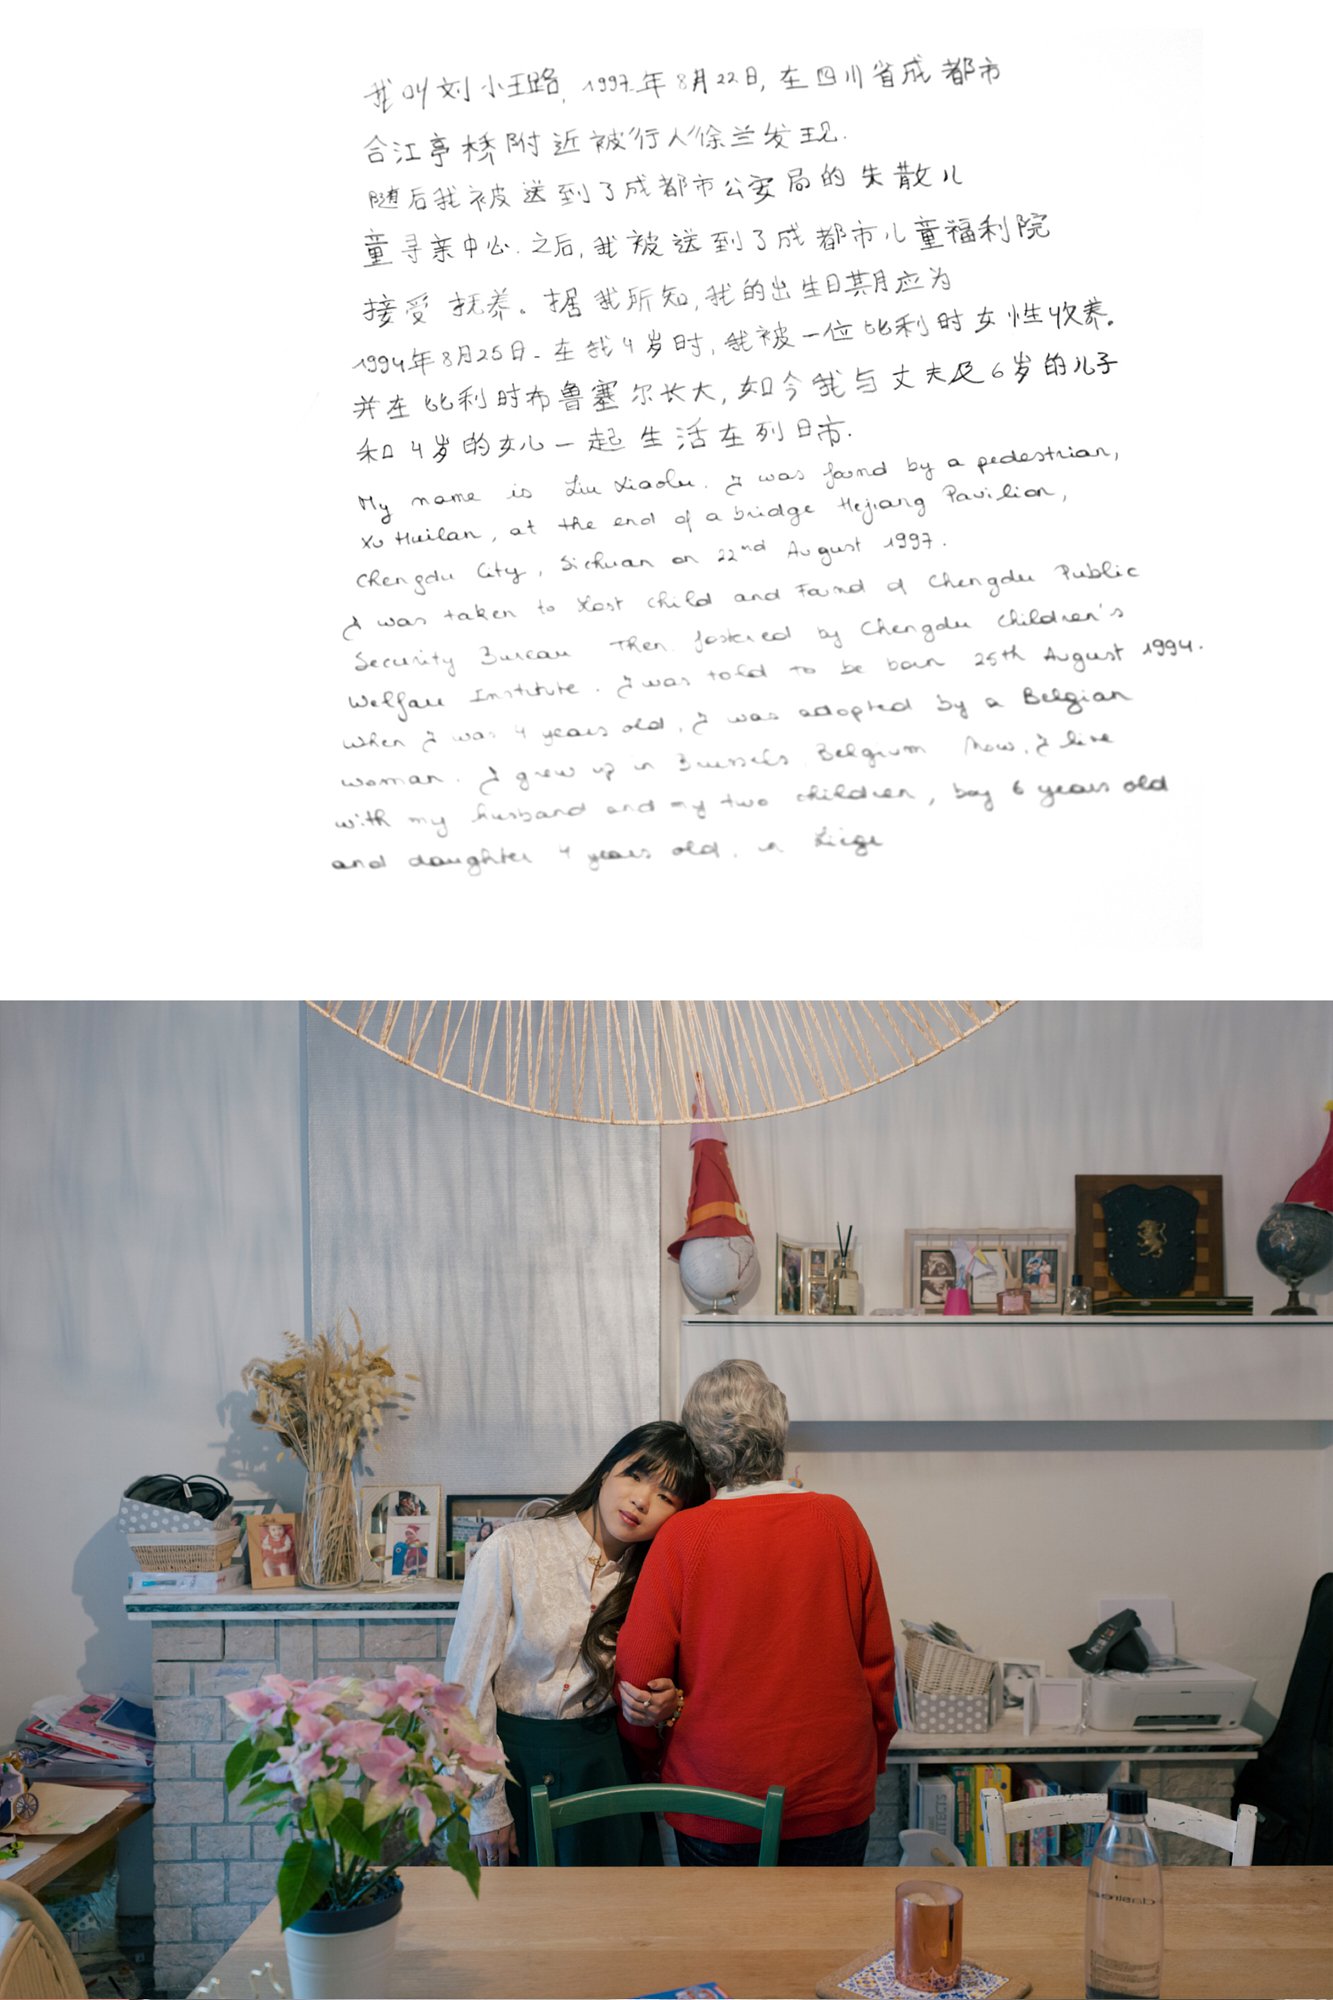 我叫刘小璐, 1997年8月22日, 在四川省成都市
合江亭桥附近被行人徐兰发现.
随后我被送到了成都市公安局的失散儿
童寻亲中心. 之后, 我被送到了成都市儿童福利院
接受抚养。据我所知, 我的出生日期应为
1994年8月25日. 在我4岁时, 我被一位比利时女性收养。
并在比利时布鲁塞尔长大, 如今我与丈夫及6岁的儿子
和4岁的女儿一起生活在列日市.
My name is Liu Xiaolu. I was found by a pedestrian,
Xu Huilan, at the end of a bridge Hejiang Pavilion,
Chengdu City, Sichuan on 22nd August 1997.
I was taken to Lost Child and Found of Chengdu Public
Security Bureau Then fostered by Chengdu Children's
Welfare Institute. I was told to be born 25th August 1994.
When I was 4 years old, I was adopted by a Belgian
woman. I grew up in Brussels, Belgium Now, I live
with my husband and my two children, boy 6 years old
and daughter 4 years old, in Liège